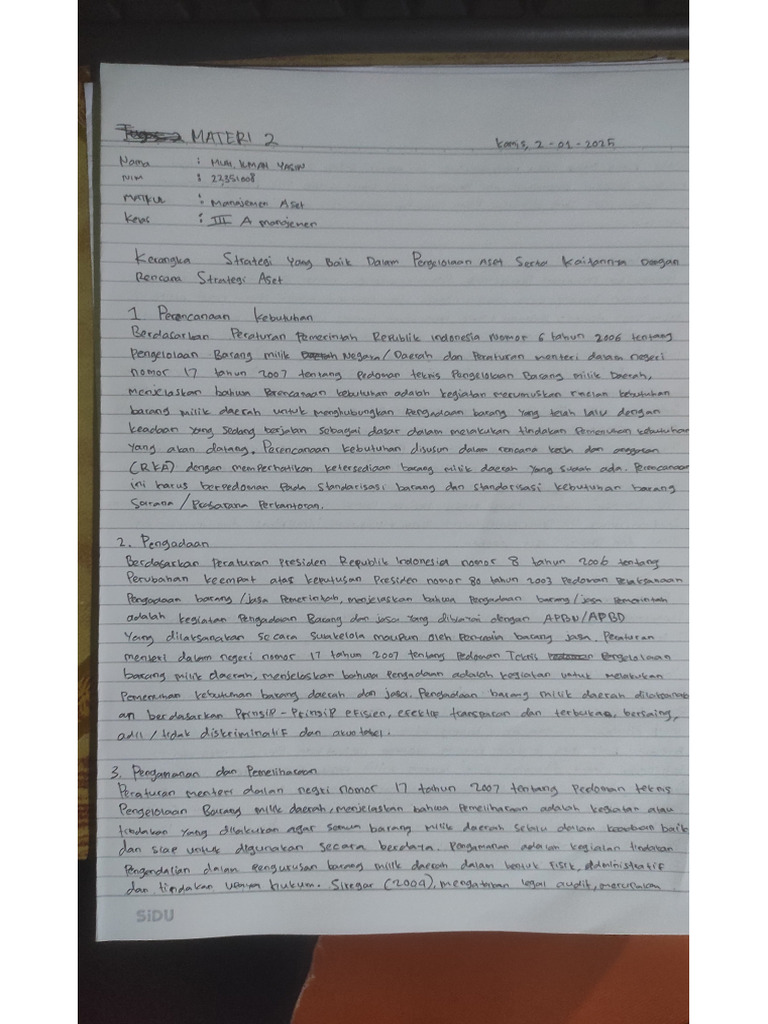 MATERI 2
Kamis, 2-01-2025
Nama : MUH. IKMAH YASIN
NIM : 22351008
MATKUL : Manajemen Aset
Kelas : III A manajemen
Kerangka Strategi Yang Baik Dalam Pengelolaan Aset Serta Kaitannya Dengan
Rencana Strategi Aset
1. Perencanaan Kebutuhan
Berdasarkan Peraturan Pemerintah Republik Indonesia nomor 6 tahun 2006 tentang
Pengelolaan Barang milik Negara/Daerah dan Peraturan menteri dalam negeri
nomor 17 tahun 2007 tentang Pedoman teknis Pengelolaan Barang milik Daerah,
menjelaskan bahwa Perencanaan kebutuhan adalah kegiatan merumuskan rincian kebutuhan
barang milik daerah untuk menghubungkan Pengadaan barang yang telah lalu dengan
keadaan yang sedang berjalan sebagai dasar dalam melakukan tindakan Pemenuhan kebutuhan
yang akan datang. Perencanaan kebutuhan disusun dalam rencana kerja dan anggaran
(RKA) dengan memperhatikan ketersediaan barang milik daerah yang sudah ada. Perencanaan
ini harus berpedoman Pada standarisasi barang dan standarisasi kebutuhan barang
Sarana/Prasarana Perkantoran.
2. Pengadaan
Berdasarkan Peraturan Presiden Republik Indonesia nomor 8 tahun 2006 tentang
Perubahan keempat atas keputusan Presiden nomor 80 tahun 2003 Pedoman Pelaksanaan
Pengadaan barang/jasa Pemerintah, menjelaskan bahwa Pengadaan barang/jasa Pemerintah
adalah kegiatan Pengadaan Barang dan jasa yang dibiayai dengan APBN/APBD
Yang dilaksanakan secara swakelola maupun oleh barang jasa. Peraturan
menteri dalam negeri nomor 17 tahun 2007 tentang Pedoman Teknis Pengelolaan
barang milik daerah, menjelaskan bahwa Pengadaan adalah kegiatan untuk melakukan
Pemenuhan kebutuhan barang daerah dan jasa. Pengadaan barang milik daerah dilaksanak
an berdasarkan Prinsip-Prinsip efisien, efektif transparan dan terbuka, bersaing,
adil/tidak diskriminatif dan akuntabel.
3. Pengamanan dan Pemeliharaan
Peraturan menteri dalam negri nomor 17 tahun 2007 tentang Pedoman teknis
Pengelolaan Barang milik daerah, menjelaskan bahwa Pemeliharaan adalah kegiatan atau
tindakan yang dilakukan agar semua barang milik daerah selalu dalam keadaan baik
dan siap untuk digunakan secara berdaya. Pengamanan adalah kegiatan tindakan
Pengendalian dalam Pengurusan barang milik daerah dalam bentuk fisik, administratif
dan tindakan upaya hukum. Siregar (2004), mengatakan legal audit, merupakan
SiDU